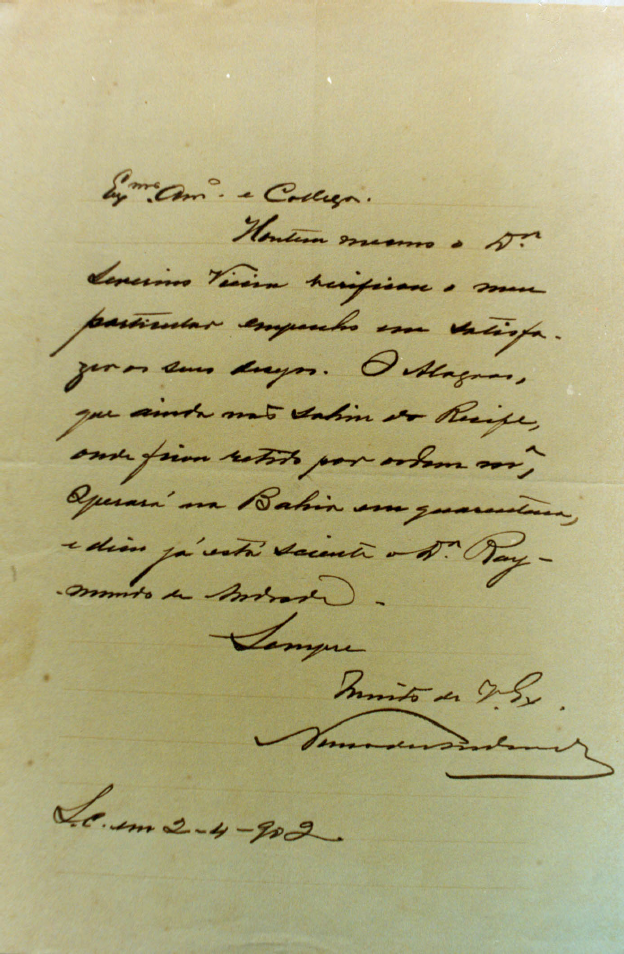 Exmo. Amo. e Collega.
Hontem mesmo o Dr.
Severino Vieira verificou o meu
particular empenho em satisfa-
zer os seus desejos. O Alagoas,
que ainda não sahiu do Recife,
onde ficou retido por ordem mª,
Operará na Bahia em quarentena,
e disso já está sciente o Dr. Ray-
mundo de Andrade.
Sempre
Muito de V. Ex.
S.C. em 2-4-902.